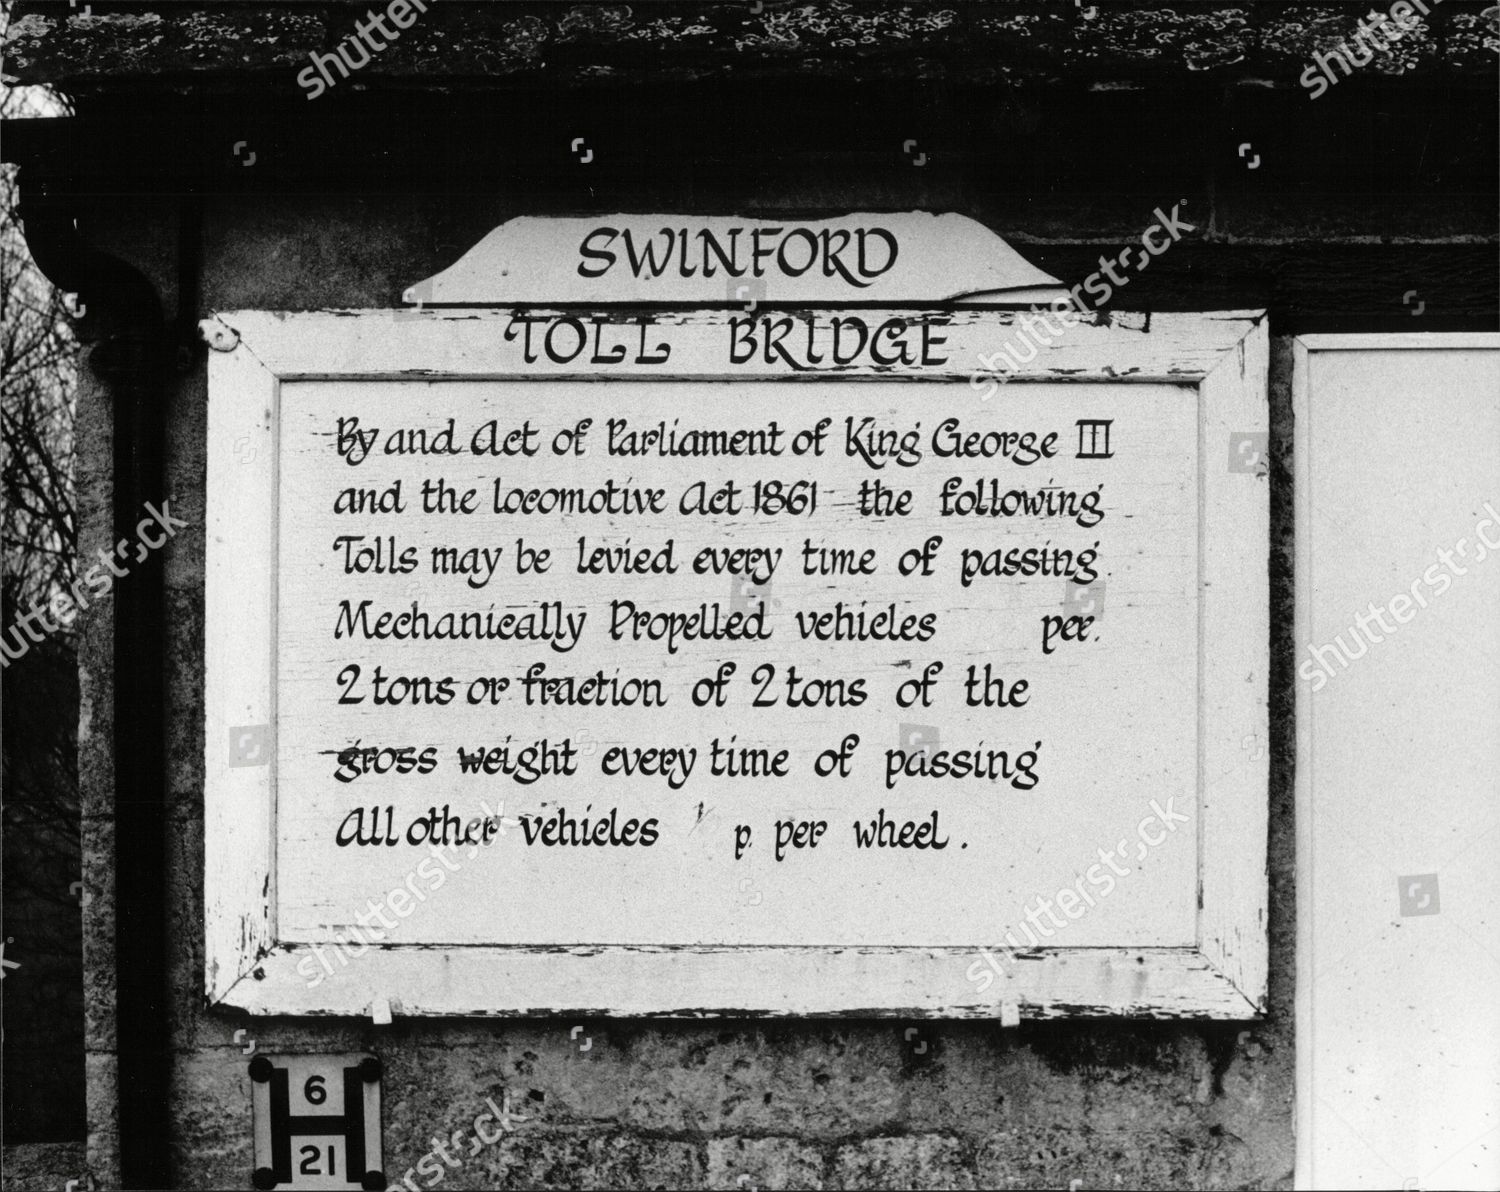 SWINFORD
TOLL BRIDGE
By and Act of Parliament of King George III
and the locomotive Act 1861 the following
Tolls may be levied every time of passing.
Mechanically Propelled vehicles per.
2 tons or fraction of 2 tons of the
gross weight every time of passing
All other vehicles p. per wheel.
6
H
21
shutterstock